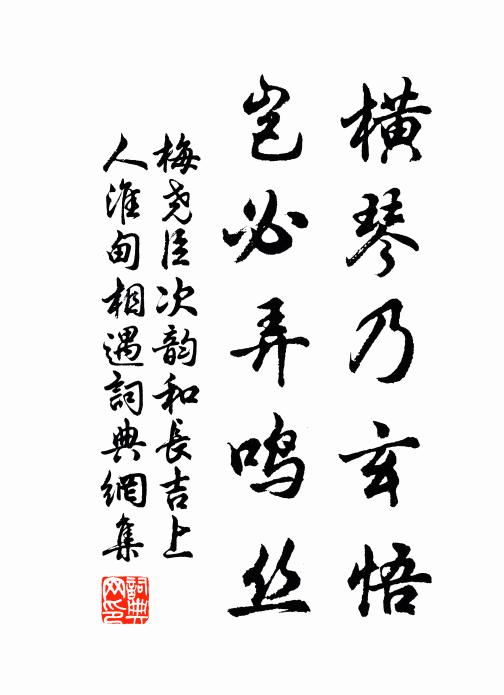 横琴乃玄悟
岂必弄鸣丝
梅尧臣次韵和長吉上
人淮甸相遇詞典網集
詞典网印